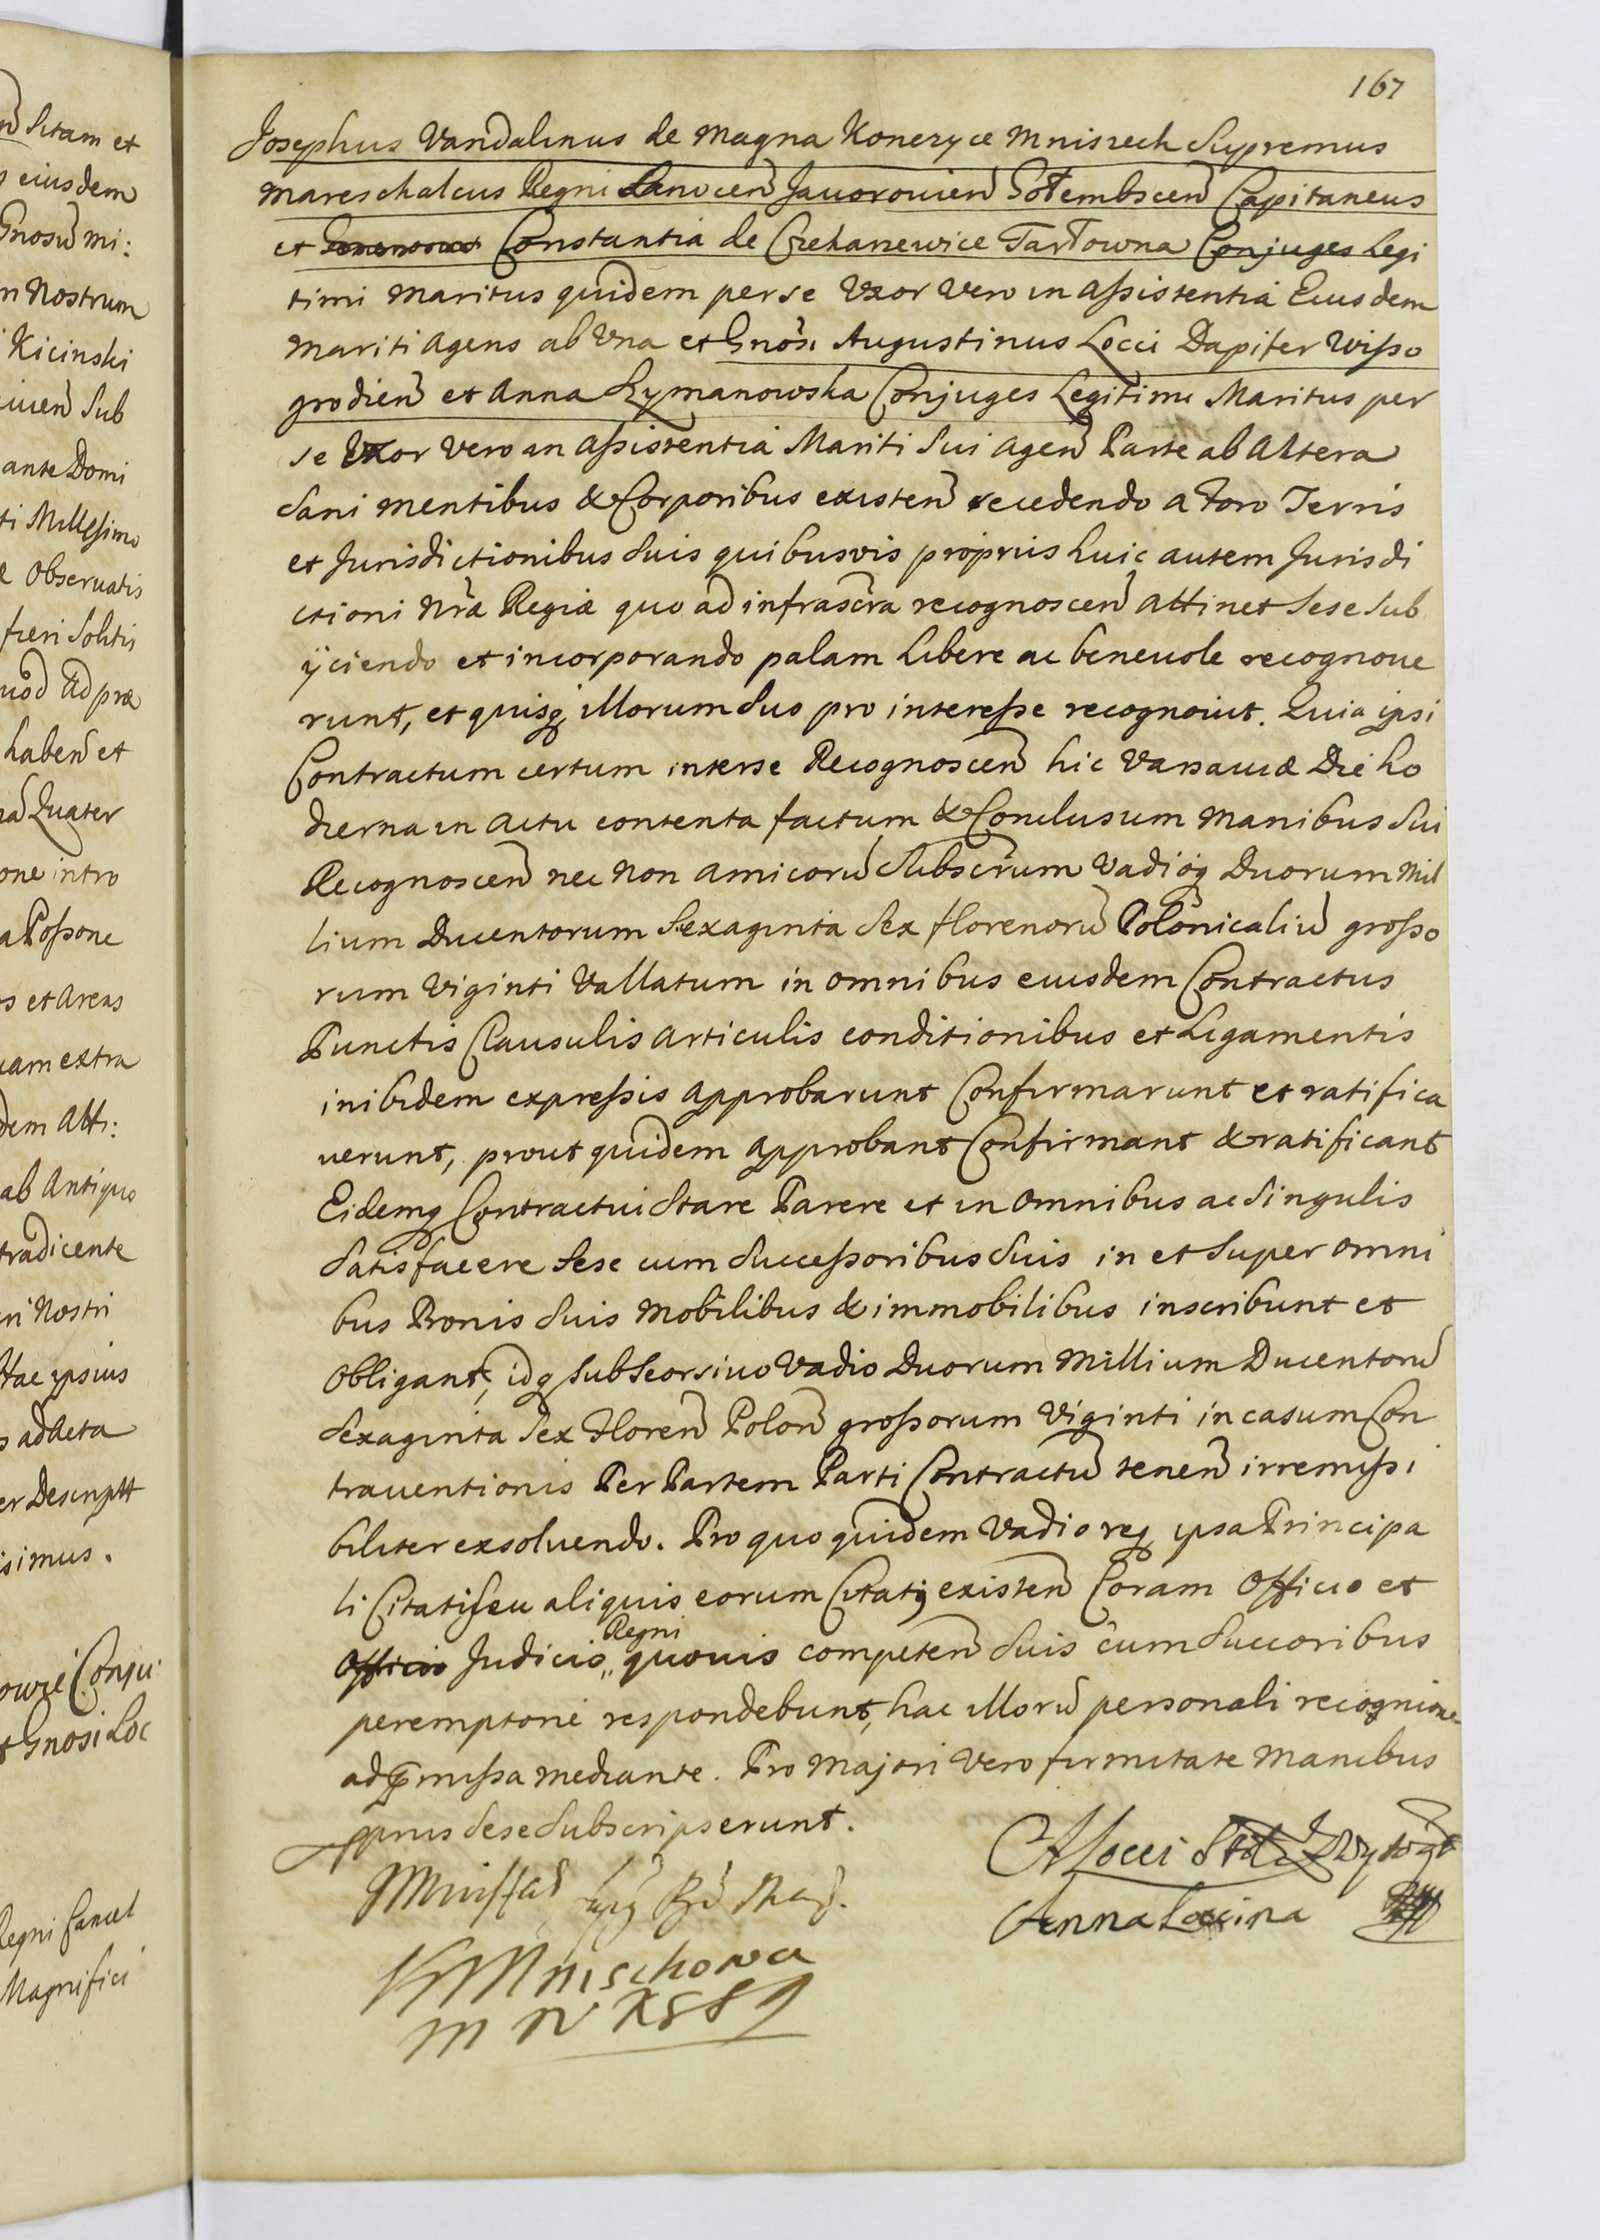 167
Josephus Vandalinus de Magna Konczyce Mniszech Supremus
Mareschalcus Regni Sanocen Javorovien Gołembscen Capitaneus
et Constantia de Czekarzewice Tarłowna Conjuges Legi
timi Maritus quidem per se Uxor vero in assistentia Eiusdem
Mariti agens ab Una et Gnosi Augustinus Locci Dapifer Wisso
grodien et Anna Szymanowska Conjuges Legitimi Maritus per
se Uxor vero in assistentia Mariti sui agen Parte ab Altera
Sani mentibus & Corporibus existen recedendo a Foro Terris
et Jurisdictionibus suis quibusvis proprijs huic autem Jurisdi
ctioni Nrã Regiæ quo ad infrascra recognoscen attinet sese sub
ijciendo et incorporando palam libere ac benevole recognove
runt, et quisq illorum suo pro interesse recognovit. Quia ipsi
Contractum certum inter se Recognoscen hic Varsaviæ Die ho
dierna in actu contenta factum & Conclusum manibus sui
Recognoscen nec non amicorũ Subscrum Vadioq Duorum Mil
lium Ducentorum Sexaginta Sex florenorũ Polonicaliũ grosso
rum Viginti Vallatum in omnibus eiusdem Contractus
Punctis Clausulis articulis conditionibus et Ligamentis
inibidem expressis approbarunt Confirmarunt et ratifica
verunt, prout quidem approbant Confirmant & ratificant
Eidemq Contractui Stare Parere et in omnibus ac singulis
Satisfacere sese cum Successoribus suis in et super omni
bus Bonis suis mobilibus & immobilibus inscribunt et
obligant, idq sub Seorsivo Vadio Duorum Millium Ducentorũ
Sexaginta Sex Floren Polon grossorum Viginti in casum Con
traventionis Per Partem Parti Contractũ tenen irremissi
biliter exsolvendo. Pro quo quidem Vadio req ipsa Principa
li Citati seu aliquis eorum Citatq existen Coram Officio et
Officio Judicio Regni quovis competen suis cum Succoribus
peremptorie respondebunt, hac illorũ personali recognione
ad præmissa mediante. Pro Majori vero firmitate Manibus
pprijs sese Subscripserunt.
A Locci
Anna Loccina
K Mniszchowa
M W K
n Sitam et
eiusdem
Gnosũ Mi:
m Nostrum
Kicinski
sub
ante Domi
ti Millesimo
e Observatis
fieri Solitis
uod ad præ
haben et
Quater
one intro
a Possone
s et Areas
uam extra
dem Att:
ab Antiquo
tradicente
ri Nostri
Hac ipsius
s ad Acta
er Descriptt
simus.
owie Conju
t Gnosi Loc
Regni Cancel
Magnifici